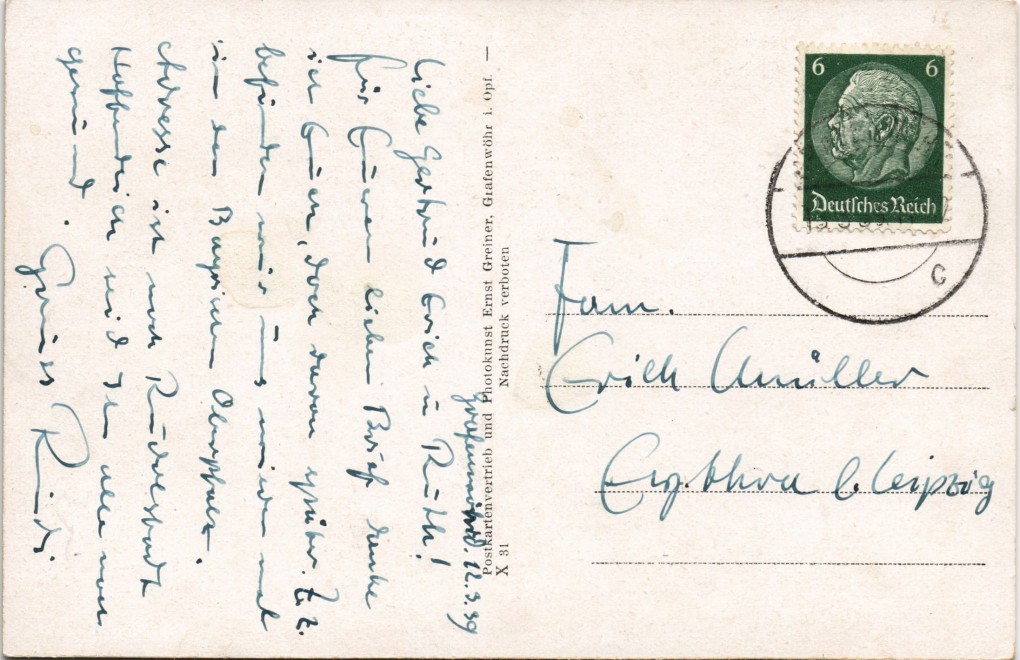 Grafenwöhr d. 12.3.39
Liebe Gertrud Erich u Ruth!
für Euren lieben Brief danke
ich Euch, doch davon später. Z. Z.
befinden wir uns wieder mal
in der Bayrischen Oberpfalz.
Adresse ist noch Rudolstadt
Hoffentlich seid Ihr alle
gesund. Gruß
Postkartenvertrieb und Photokunst Ernst Greiner, Grafenwöhr i. Opf. —
X 31 Nachdruck verboten
6 6
Deutsches Reich
c
Fam.
Erich Müller
b. Leipzig